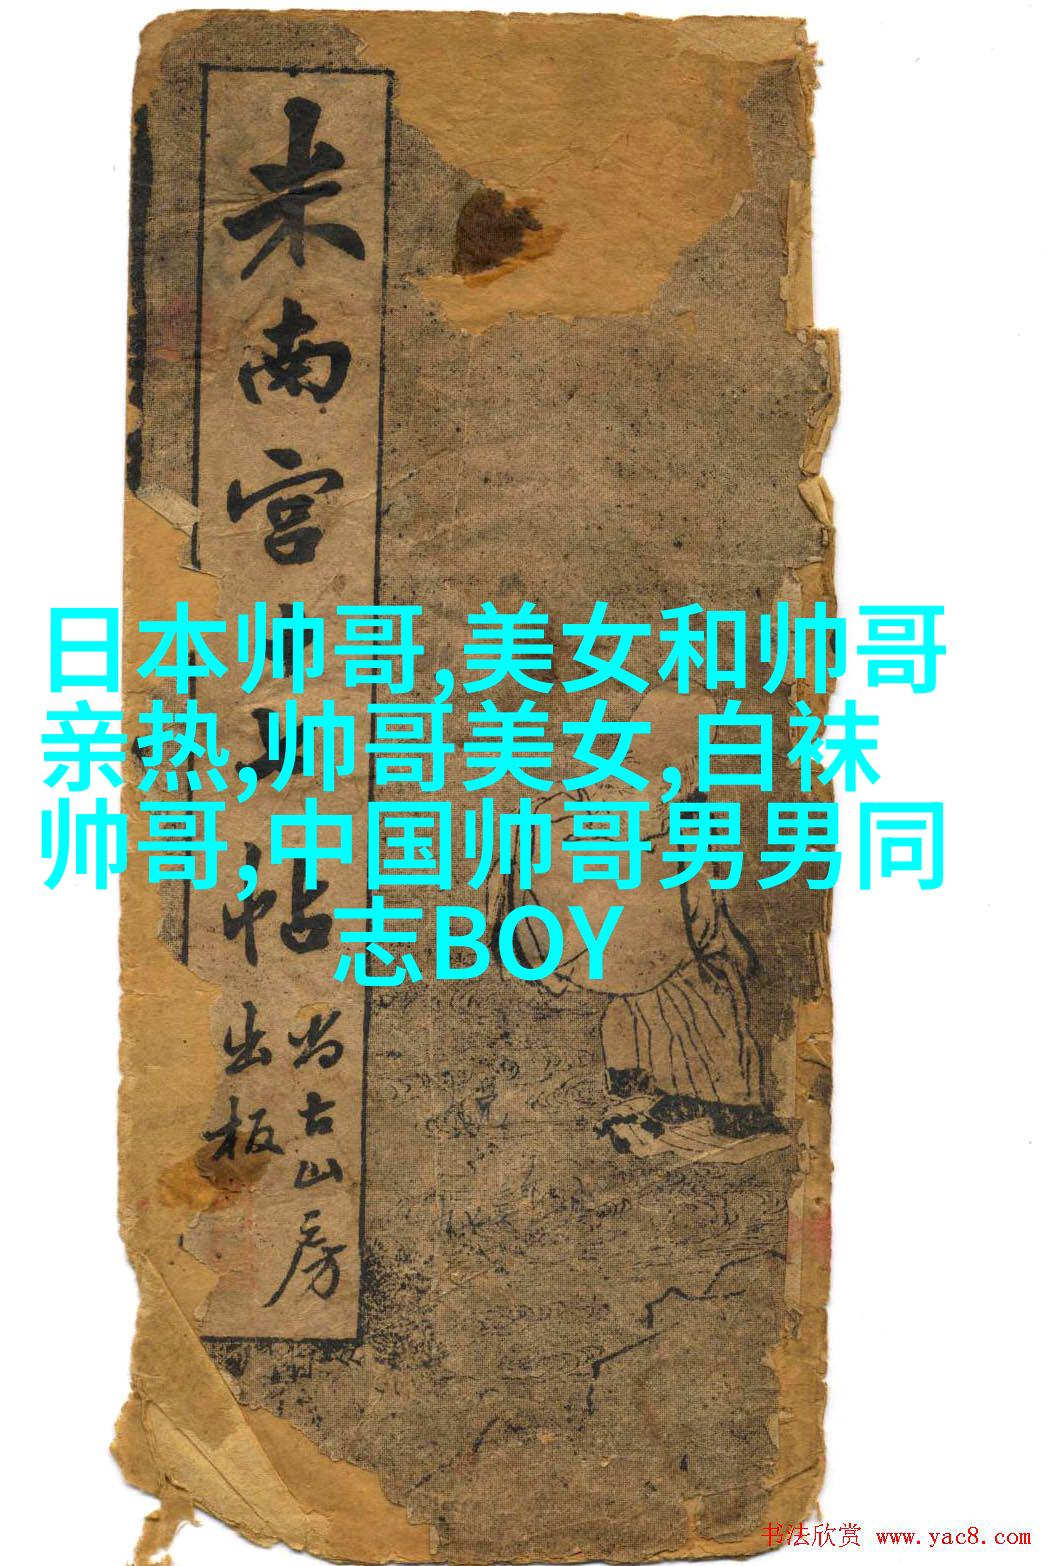 米南宮帖
尚古山房
出板
日本帅哥,美女和帅哥
亲热,帅哥美女,白袜
帅哥,中国帅哥男男同
志BOY
书法欣赏 www.yac8.com